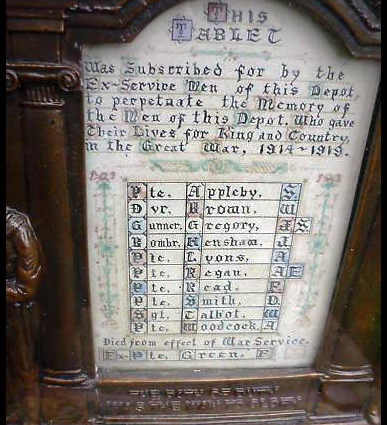 This
Tablet
Was Subscribed for by the
Ex-Service Men of this Depot,
to perpetuate the Memory of
the Men of this Depot. Who gave
Their Lives for King and Country,
in the Great War, 1914-1919.
Pte. Appleby. S.
Dvr. Brown. W
Gunner. Gregory, J.S.
Bombr. Henshaw. J.
Pte. Lyons. A
Pte. Regan. A E
Pte. Read. F
Pte. Smith. D.
Sgt. Talbot. W
Pte. Woodcock. A
Died from effect of War Service.
Ex-Pte. Green. F